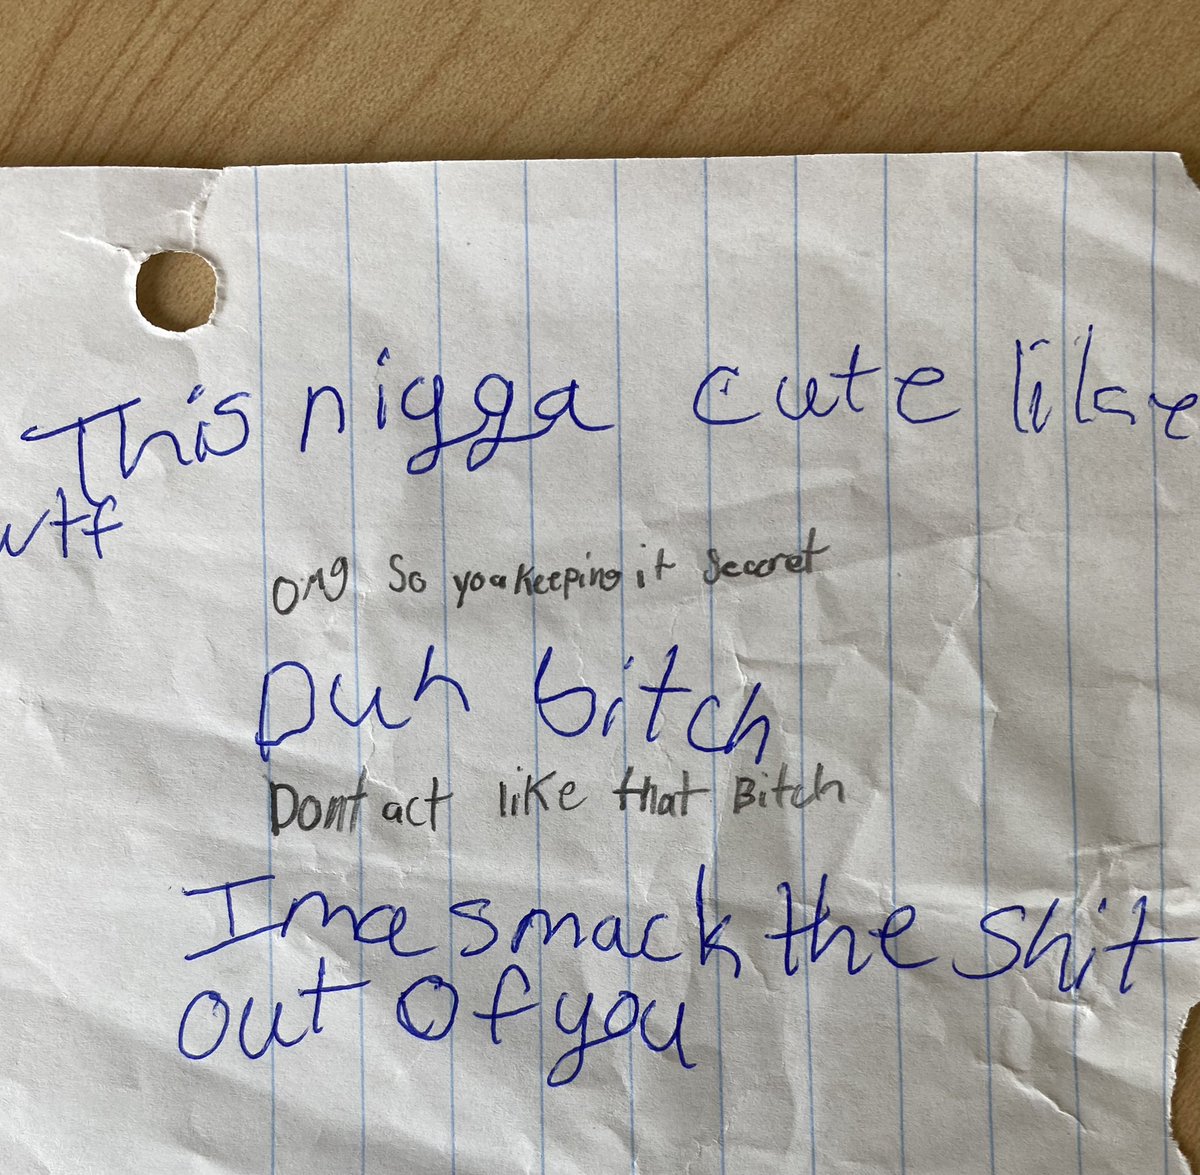 This nigga cute like
wtf
omg So you keeping it Secret
Duh bitch
Dont act like that Bitch
Ima smack the shit
out of you